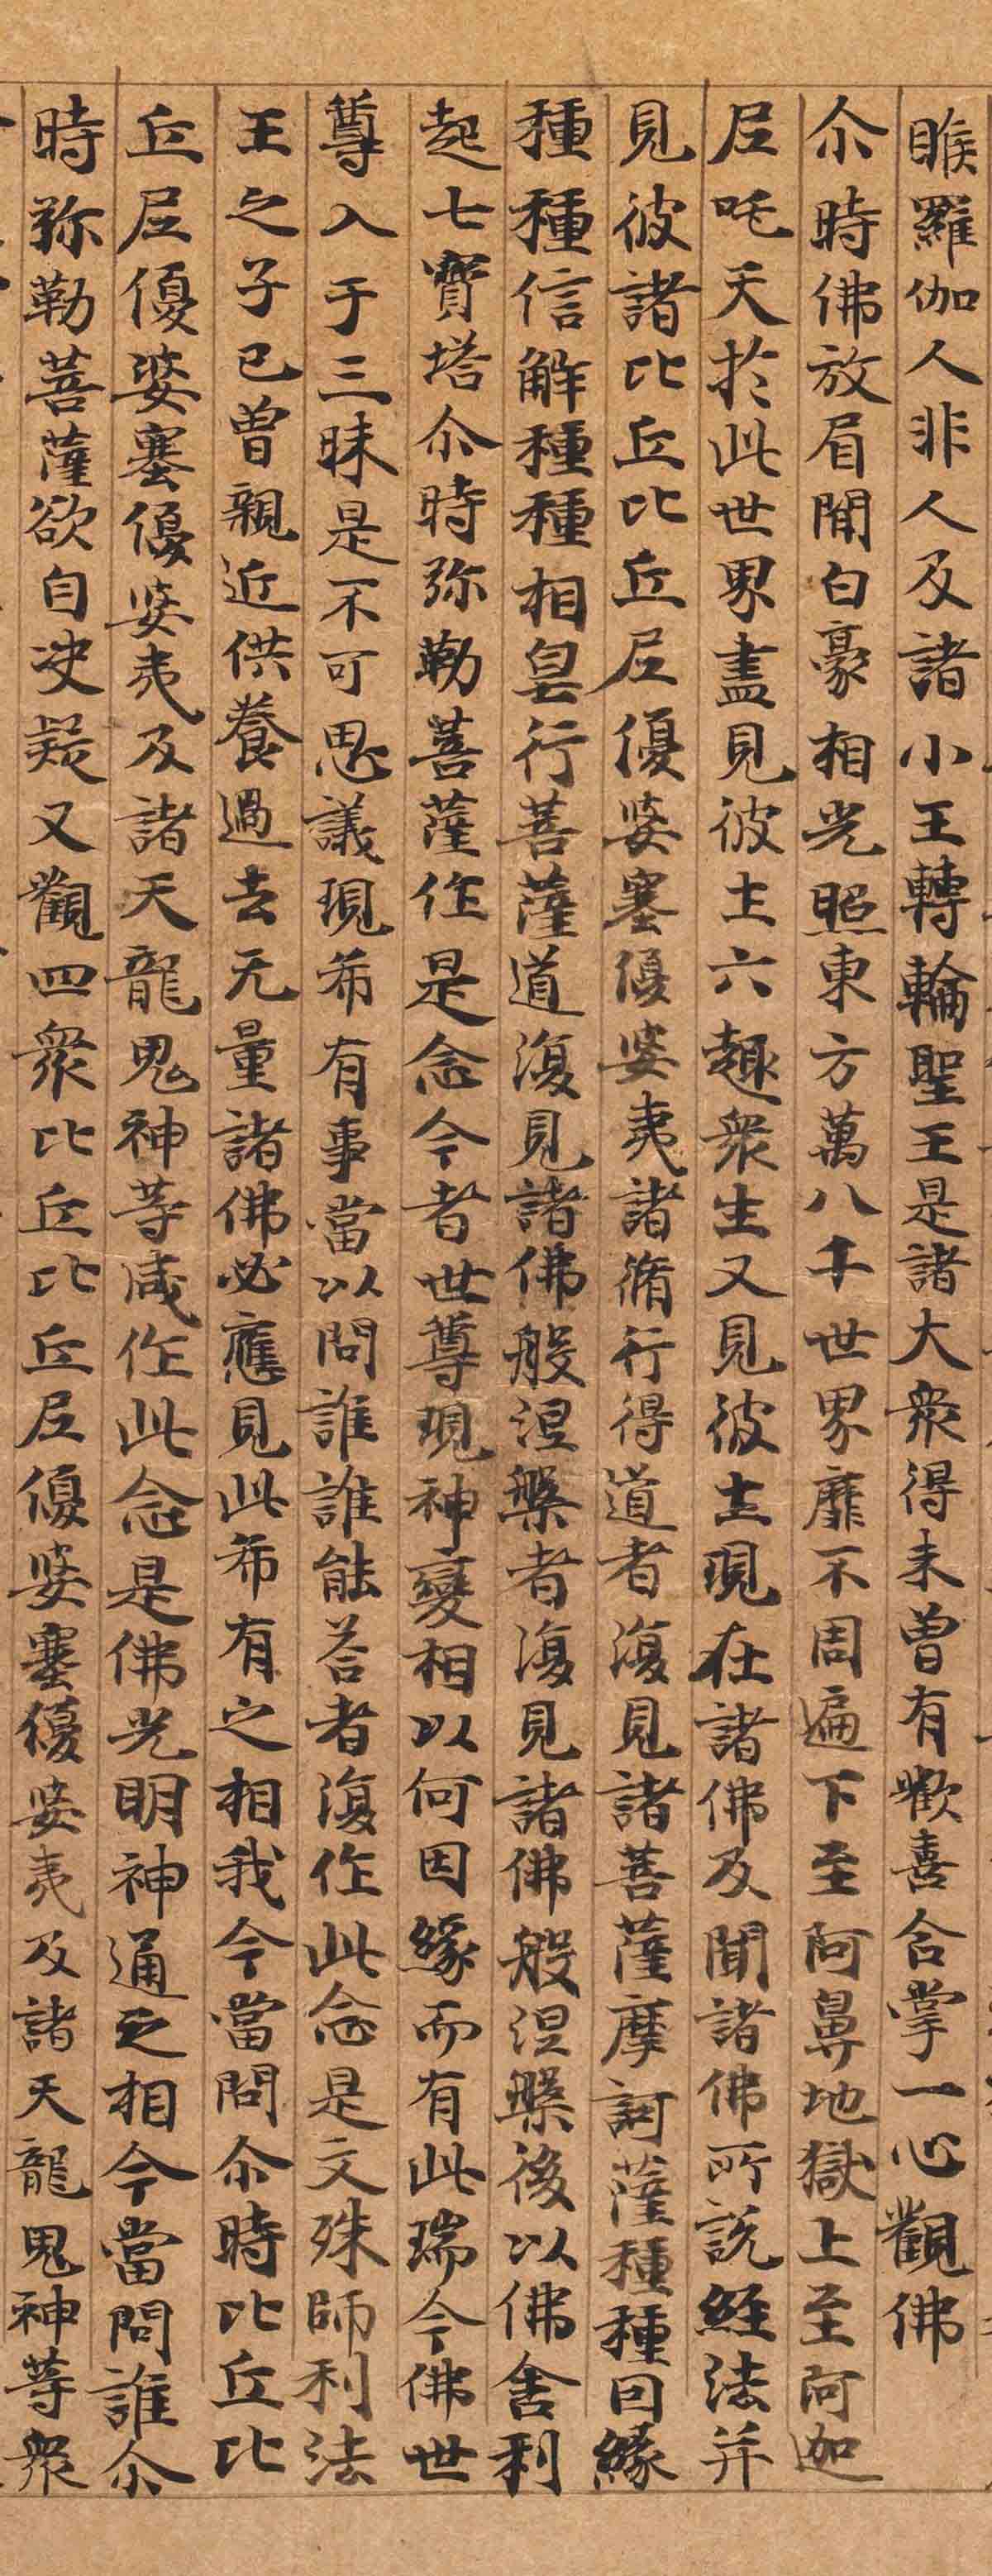 睺羅伽人非人及諸小王轉輪聖王是諸大衆得未曾有歡喜合掌一心觀佛
尒時佛放眉間白豪相光照東方萬八千世界靡不周遍下至阿鼻地獄上至阿迦
尼吒天於此世界盡見彼土六趣衆生又見彼土現在諸佛及聞諸佛所說經法并
見彼諸比丘比丘尼優婆塞優婆夷諸脩行得道者復見諸菩薩摩訶薩種種因緣
種種信解種種相皃行菩薩道復見諸佛般涅槃者復見諸佛般涅槃後以佛舍利
起七寶塔尒時弥勒菩薩作是念今者世尊現神變相以何因緣而有此瑞今佛世
尊入于三昧是不可思議現希有事當以問誰誰能荅者復作此念是文殊師利法
王之子已曾親近供養過去无量諸佛必應見此希有之相我今當問尒時比丘比
丘尼優婆塞優婆夷及諸天龍鬼神等咸作此念是佛光明神通之相今當問誰尒
時弥勒菩薩欲自决疑又觀四衆比丘比丘尼優婆塞優婆夷及諸天龍鬼神等衆